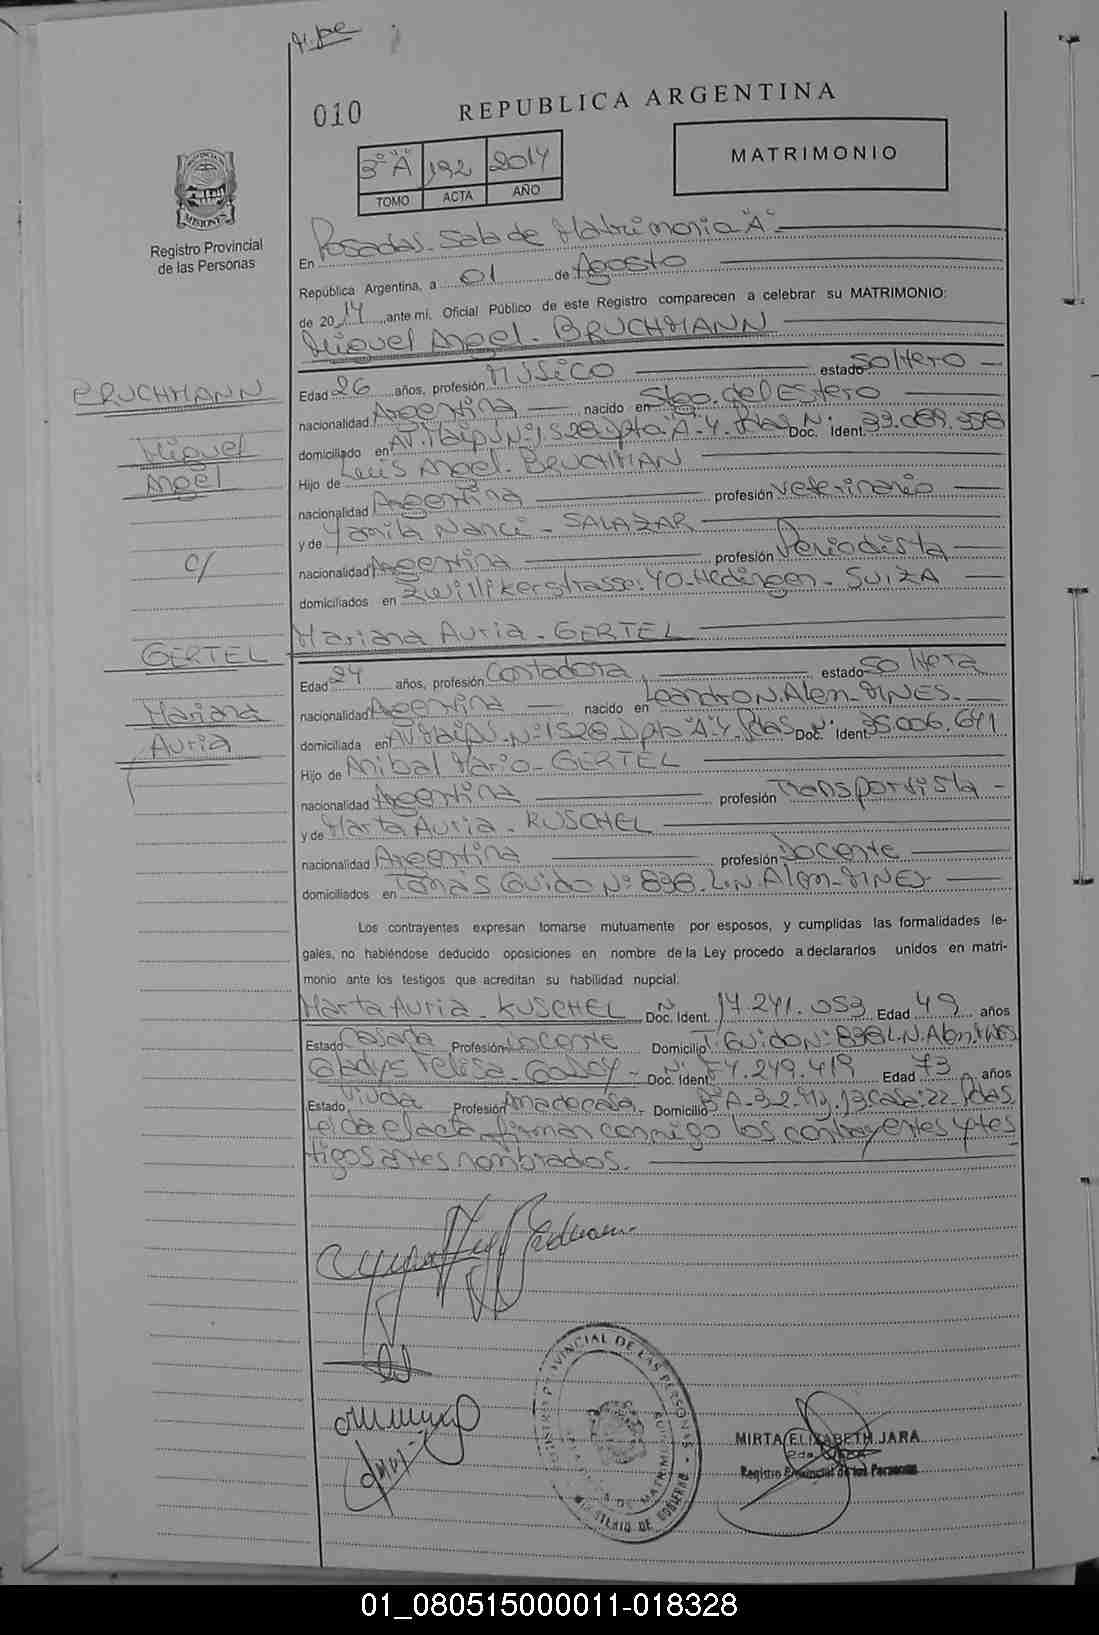 010
REPUBLICA ARGENTINA
3º "A" 192 2014
TOMO ACTA AÑO
MATRIMONIO
MISIONES
Registro Provincial
de las Personas
En Posadas - Sala de Matrimonio "A"
República Argentina, a 01 de Agosto
de 2014 ante mí, Oficial Público de este Registro comparecen a celebrar su MATRIMONIO:
Miguel Angel - BRUCHMANN
BRUCHMANN
Miguel
Angel
c/
GERTEL
Mariana
Auria
Edad 26 años, profesión Músico estado Soltero
nacionalidad Argentina nacido en Stgo. del Estero
domiciliado en Av. Ibipú Nº 1528 Dpto. A-4. Pdas Doc. Ident. 33.089.358
Hijo de Luis Angel - BRUCHMAN
nacionalidad Argentina profesión Veterinario
y de Yamila Nanci - SALAZAR
nacionalidad Argentina profesión Periodista
domiciliados en Zwillikerstrasse: 40 - Hedingen - SUIZA
Mariana Auria - GERTEL
Edad 24 años, profesión Contadora estado Soltera
nacionalidad Argentina nacido en Leandro N. Alem -
domiciliada en Av. Ibipú - Nº 1528 Dpto "A-4. Pdas Doc. Ident. 35.006.641
Hijo de Anibal Mario - GERTEL
nacionalidad Argentina profesión Transportista
y de Marta Auria - KUSCHEL
nacionalidad Argentina profesión Docente
domiciliados en Tomas Guido Nº 898. L.N. Alem -
Los contrayentes expresan tomarse mutuamente por esposos, y cumplidas las formalidades le-
gales, no habiéndose deducido oposiciones en nombre de la Ley procedo a declararlos unidos en matri-
monio ante los testigos que acreditan su habilidad nupcial.
Marta Auria - KUSCHEL Doc. Ident. 17.241.053 Edad 49 años
Estado Casada Profesión Docente Domicilio T. Guido Nº 898 L.N. Alem
Gladys - Godoy - Doc. Ident. F4.249.419 Edad 73 años
Estado Viuda Profesión Ama de casa - Domicilio Bº A-3-2 Casa: 22. Pdas.
Leída el acta, firman conmigo los contrayentes y tes
tigos antes nombrados.
REGISTRO PROVINCIAL DE LAS PERSONAS
MINISTERIO DE GOBIERNO
MIRTA ELIZABETH JARA
Registro Provincial de las Personas
01_080515000011-018328